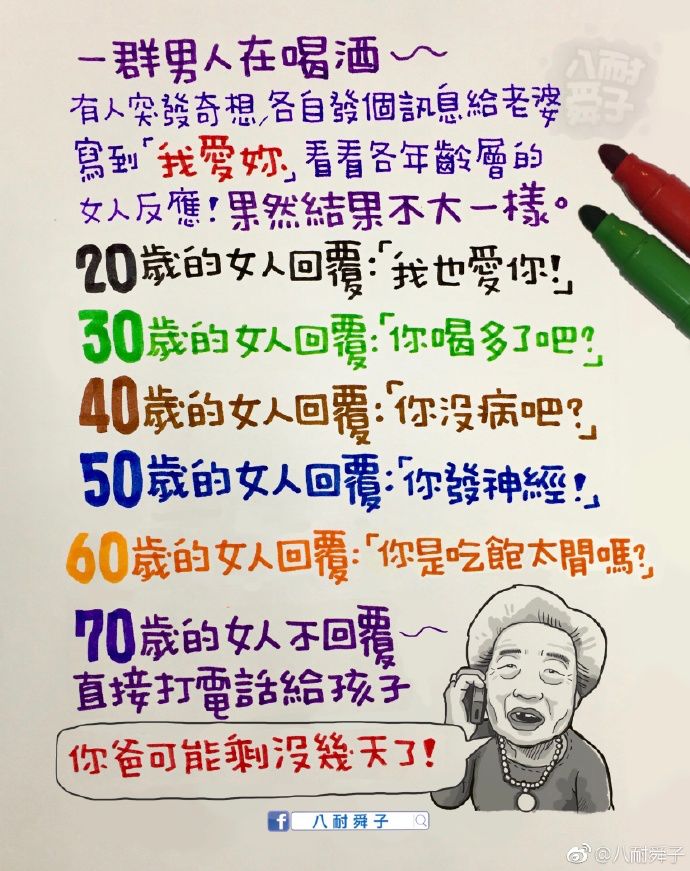 一群男人在喝酒～
八耐
舜子
有人突發奇想，各自發個訊息給老婆
寫到「我愛妳」看看各年齡層的
女人反應！果然結果不大一樣。
20歲的女人回覆：「我也愛你！」
30歲的女人回覆：「你喝多了吧？」
40歲的女人回覆：「你沒病吧？」
50歲的女人回覆：「你發神經！」
60歲的女人回覆：「你是吃飽太閒嗎？」
70歲的女人不回覆～
直接打電話給孩子
你爸可能剩沒幾天了！
f 八耐舜子
@八耐舜子